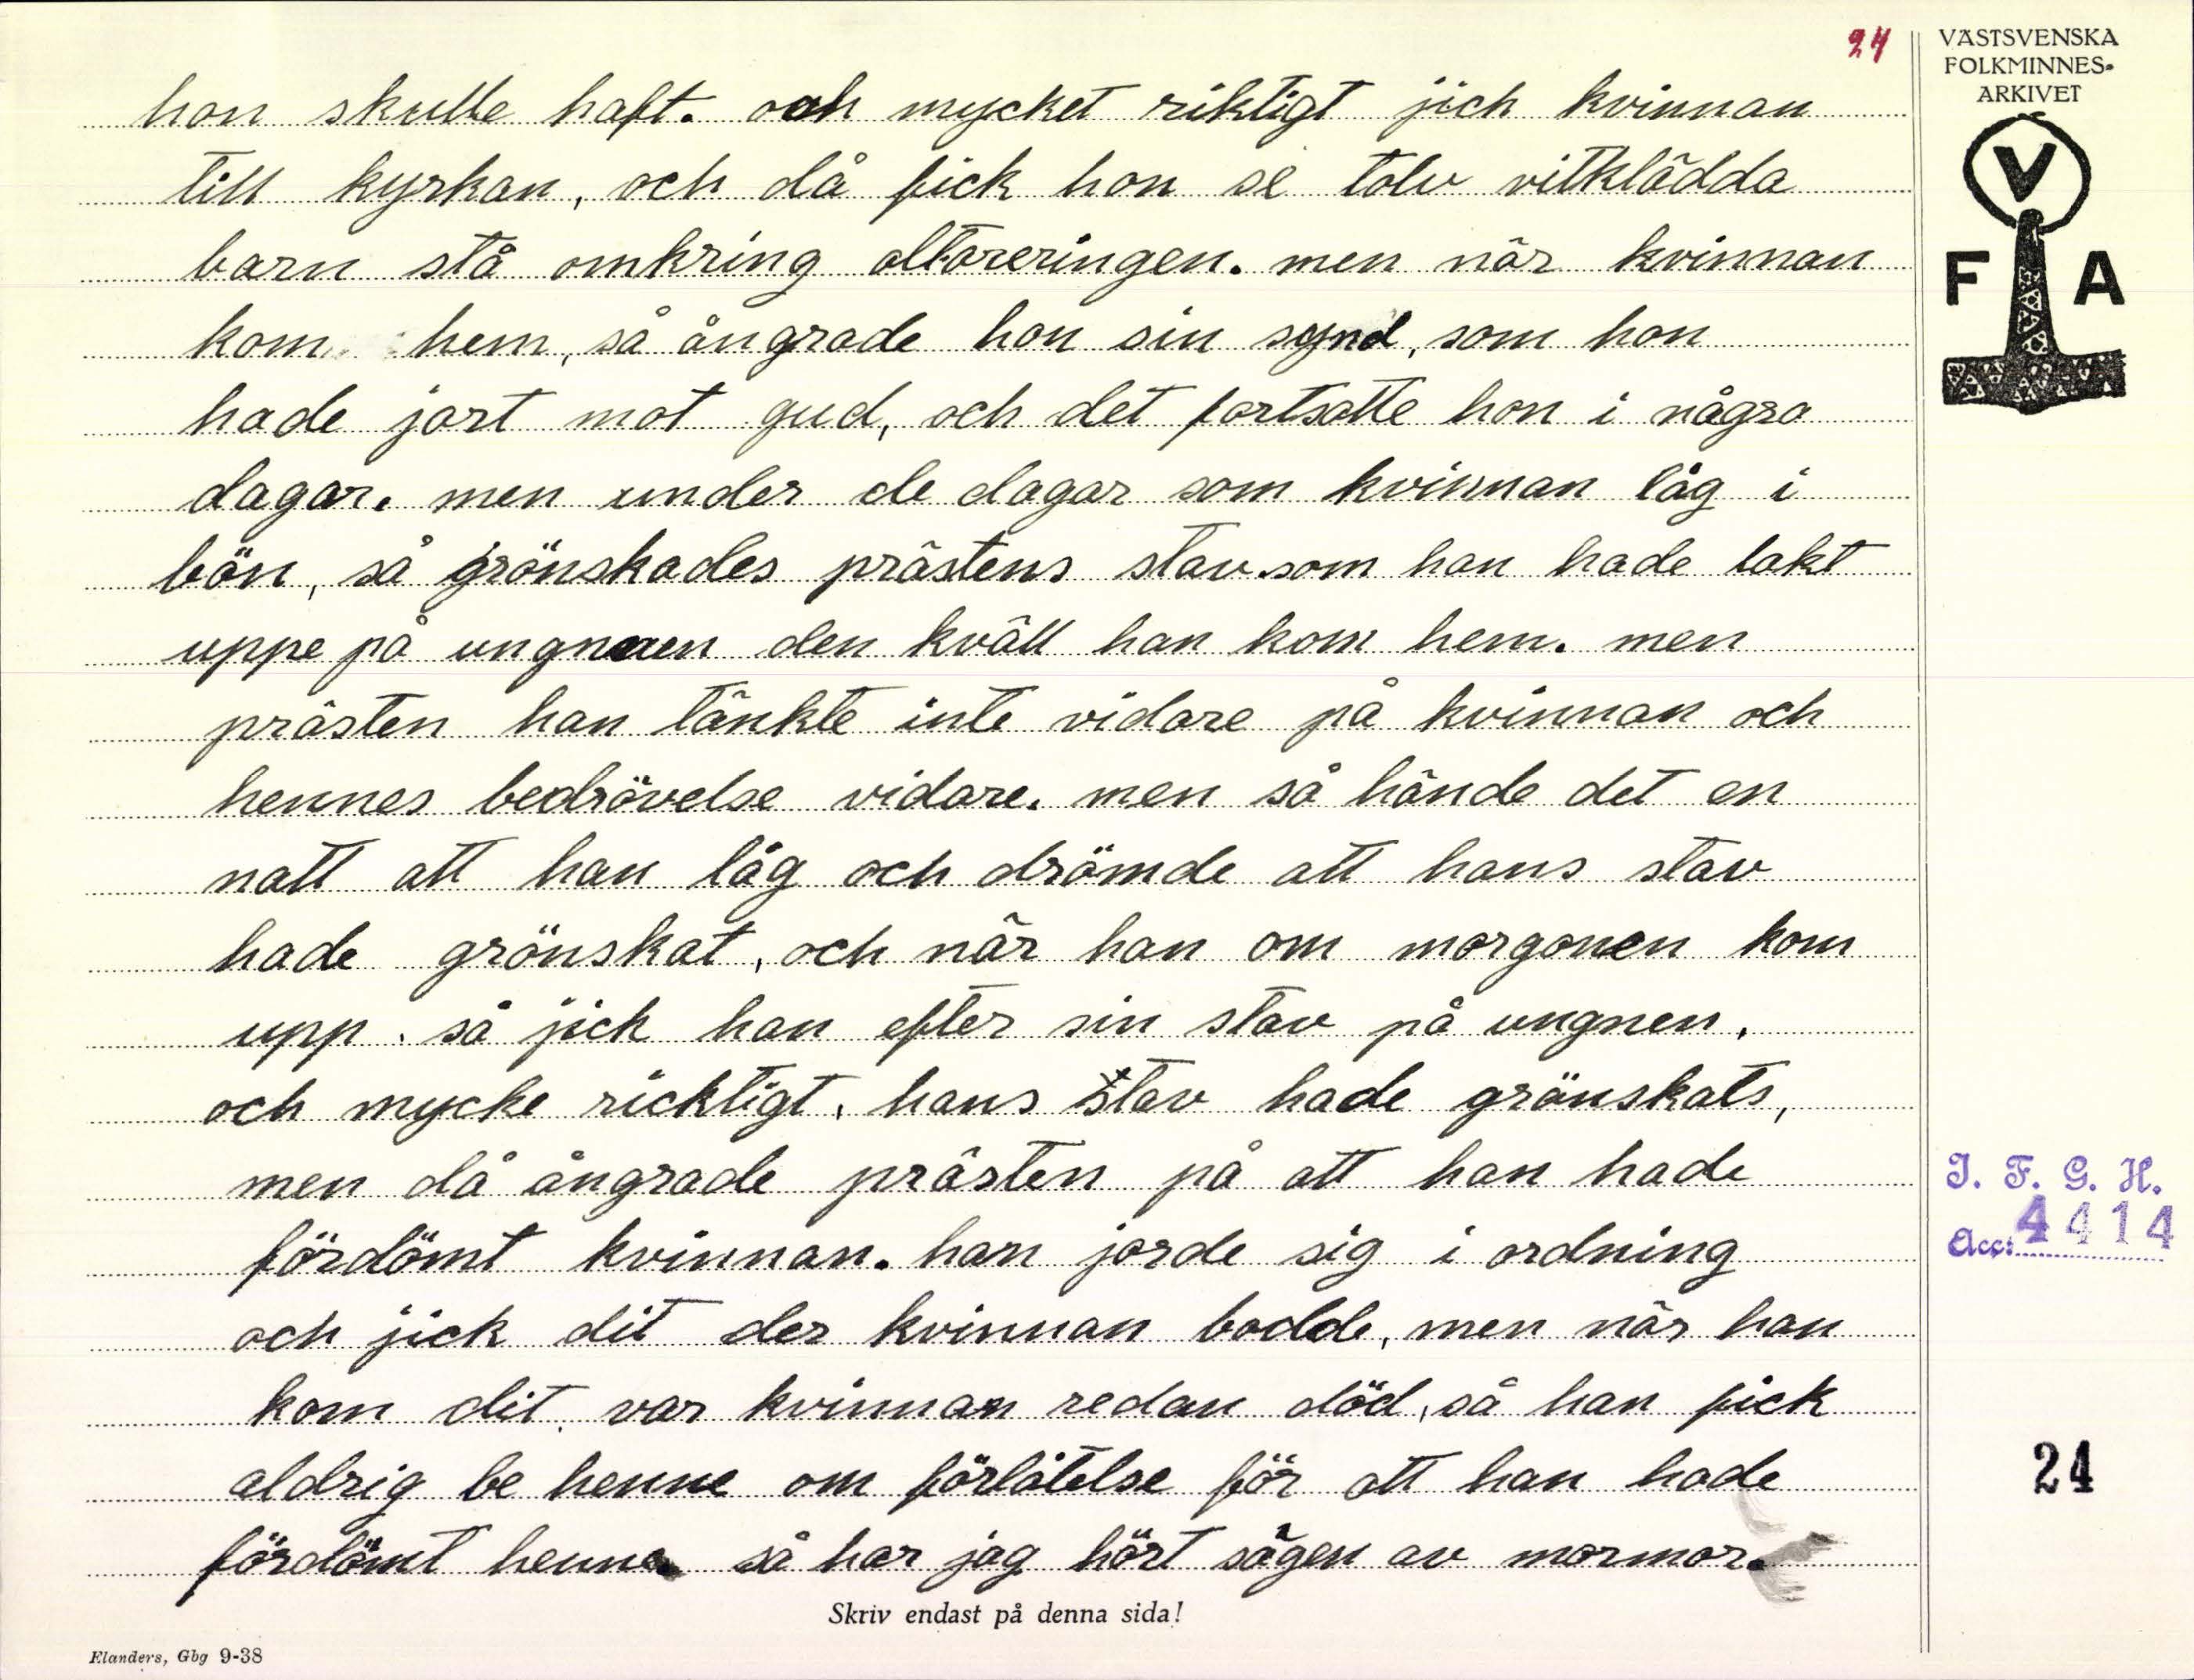 24
VÄSTSVENSKA
FOLKMINNES-
ARKIVET
V
F A
hon skulle haft. och mycket riktigt jick kvinnan
till kyrkan, och då fick hon se tolv vitklädda
barn stå omkring altareringen. men när kvinnan
kom hem, så ångrade hon sin synd, som hon
hade jort mot gud, och det fortsatte hon i några
dagar. men under de dagar som kvinnan låg i
bön, så grönskades prästens stav som han hade lakt
uppe på ungnen den kväll han kom hem. men
prästen han tänkte inte vidare på kvinnan och
hennes bedrövelse vidare. men så hände det en
natt att han låg och drömde att hans stav
hade grönskat, och när han om morgonen kom
upp. så jick han efter sin stav på ungnen.
och mycke ricktigt, hans stav hade grönskats,
men då ångrade prästen på att han hade
fördömt kvinnan. han jorde sig i ordning
och jick dit der kvinnan bodde, men när han
kom dit, var kvinnan redan död, så han fick
aldrig be henne om förlåtelse för att han hade
fördömt henne. så har jag hört sägen av mormor.
Skriv endast på denna sida!
Elanders, Gbg 9-38
I. F. G. H.
Acc: 4414
24